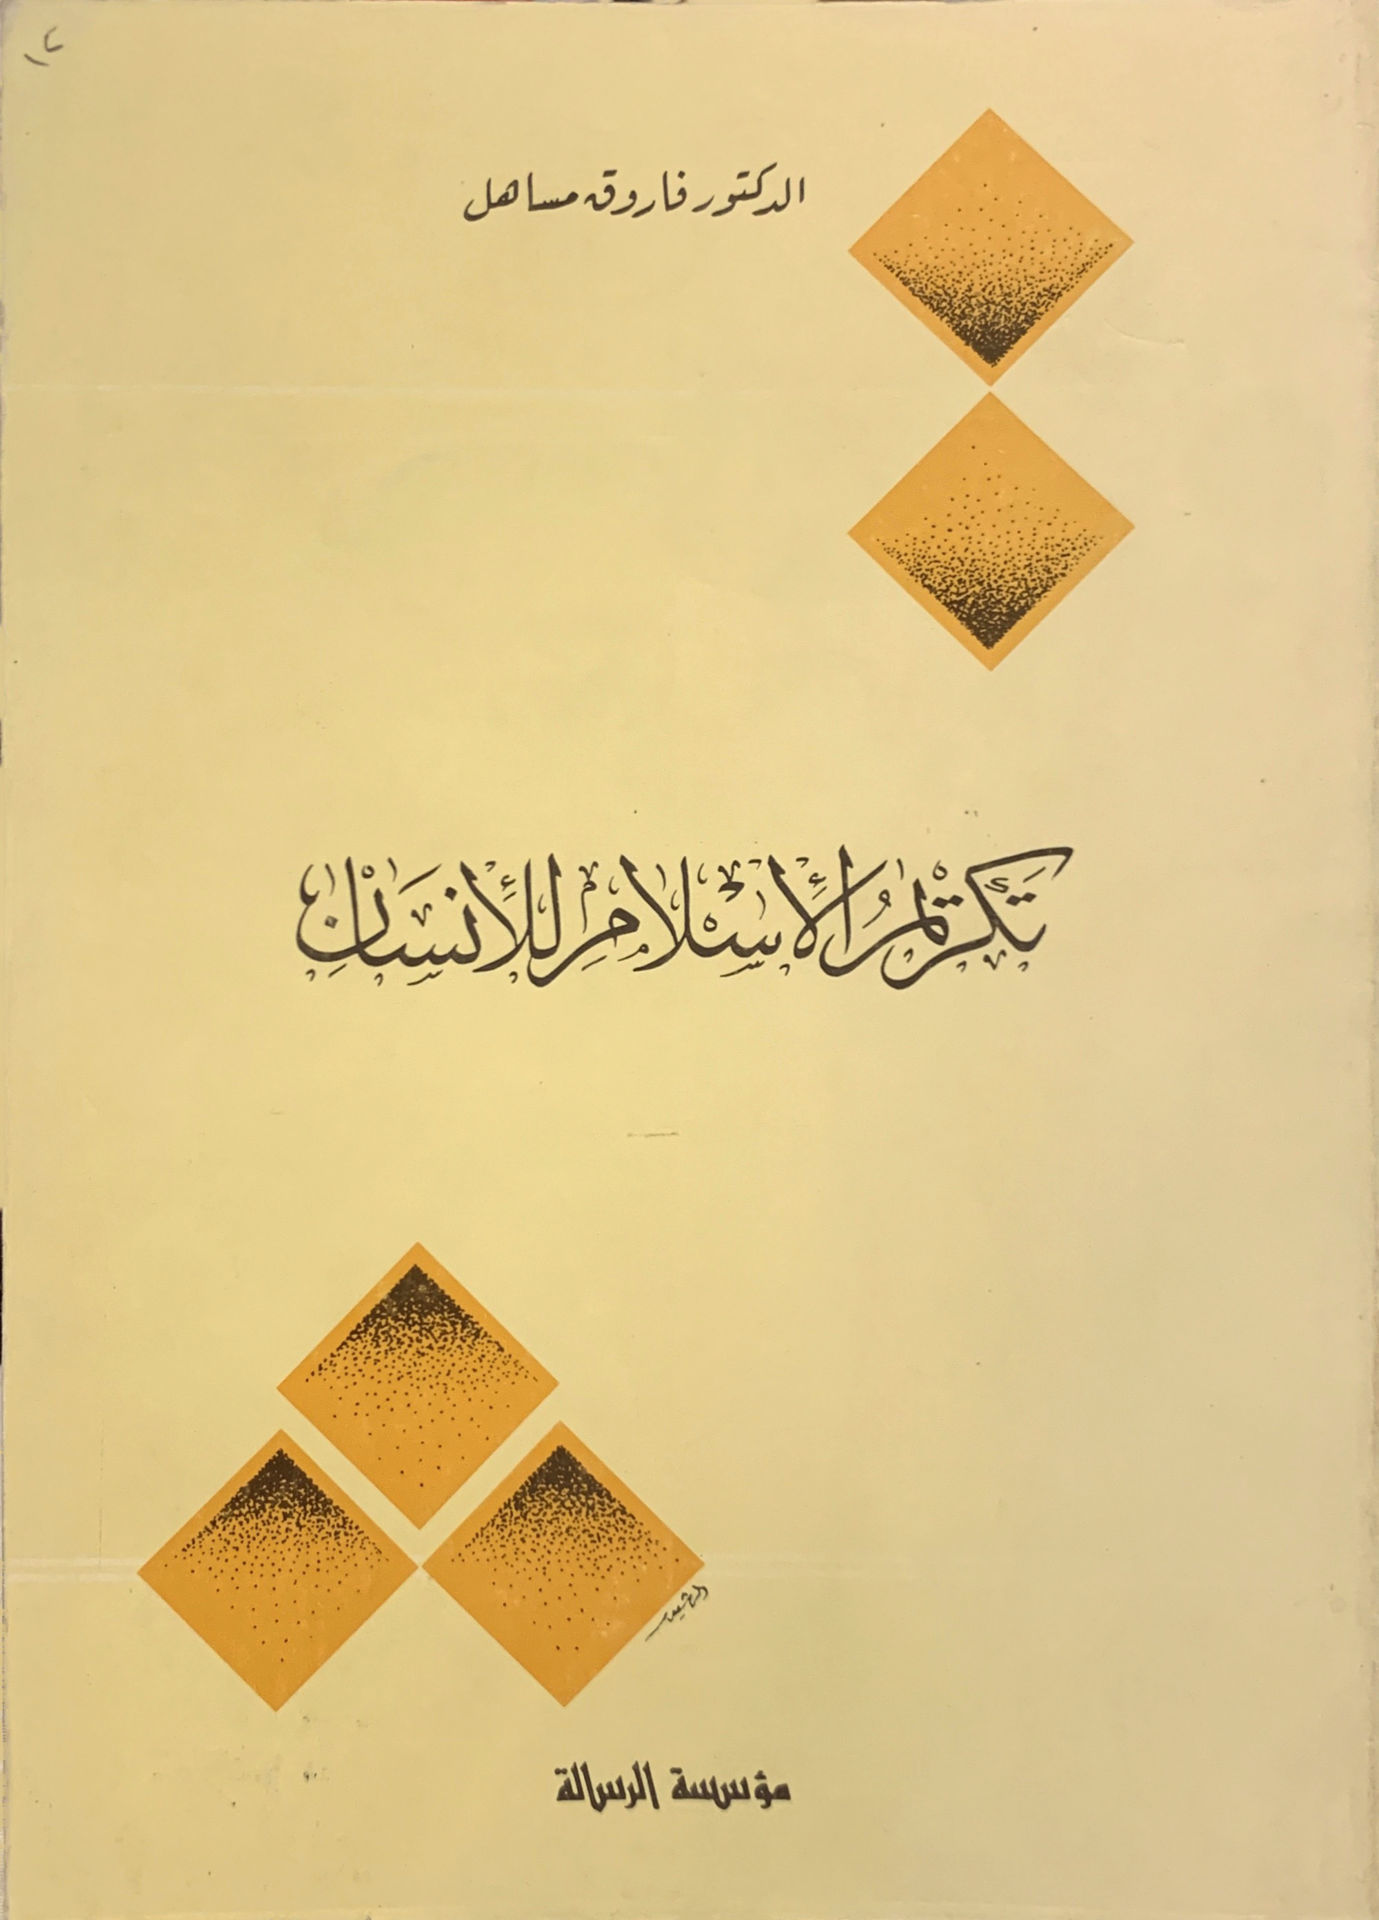 الدكتور فاروق مساهل
تَكْرِيمُ الْإِسْلَامِ لِلْإِنْسَانِ
مؤسسة الرسالة